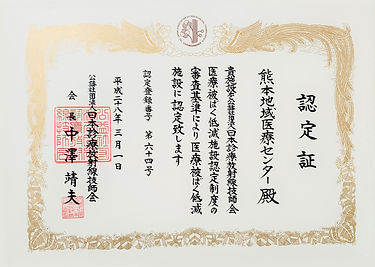 認定証
熊本地域医療センター殿
貴施設を公益社団法人日本診療放射線技師会
医療被ばく低減施設認定制度の
審査基準により医療被ばく低減
施設に認定致します
認定登録番号 第六十四号
平成二十八年三月一日
公益社団法人日本診療放射線技師会
会長 中澤靖夫